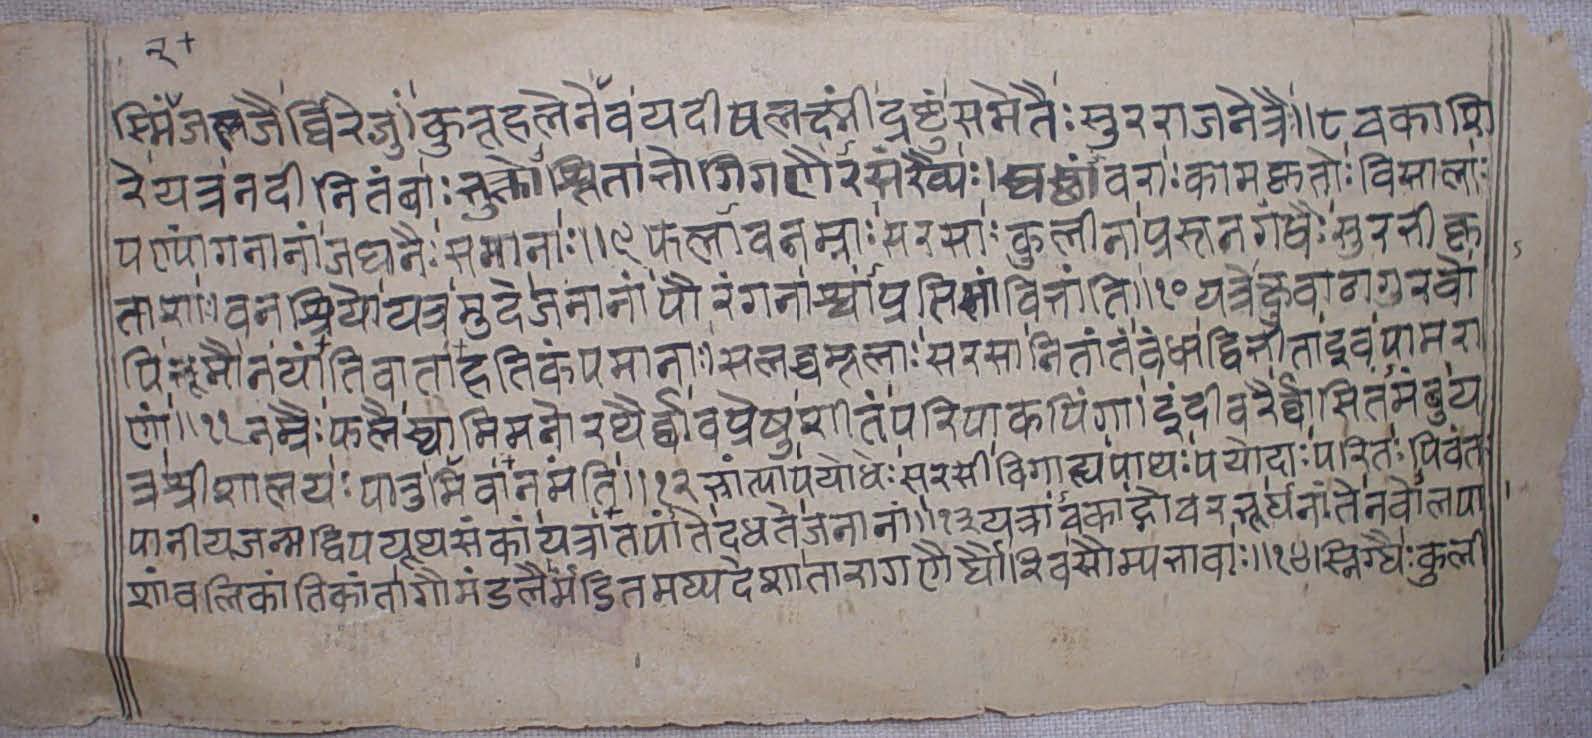 २+
स्मिँजलजैर्विरेजुः।कुतूहलेनैँवयदीषलक्ष्मींद्रष्टुंसमेतैःसुरराजनेत्रैः॥८वकाशि
रेयत्रनदीनितंबाःमुक्तोँश्रिताभोगिगणैरसंख्यैः।घष्ठांवराःकामकृतोःविसालाः
पण्पांगनानांजघनैःसमानाः॥९फलावनम्राःसरसाःकुलीनाप्रसूनगंधैःसुरभीकृ
ताशाः।वनश्रियोयत्रमुदेजनानांपौरंगनार्थ्याप्रतिमांविभांति॥१०यत्रेक्षुवाटागुरवो
पिभूमौनयांतिवाताहतिकंपमानाः।सलब्धमूलाःसरसानितांतंबंधंविभीताइवपामरा
णां॥११नम्रैःफलैश्चामिमनोरथैर्द्वावप्रेषुशीतंपरिपाकपिंगा।इंदीवरैर्वासितमंबुय
त्रश्रीशालयःपातुमिँवानमंति॥१२भ्रांत्यापयोधेःसरसीविगाह्यपाथःपयोदाःपरितःपिवंतः
पानीयजन्मद्विपयूथसंकांयत्रातपांतेदधतेजनानां॥१३यत्रावकाद्गोवरभूर्घनांतेनवोलपा
शांवलिकांतिकांतागोमंडलैर्मंडितमध्यदेशाताराग​णैर्द्यौरिवसौम्यभावाः॥१४।स्निग्धैःकुली